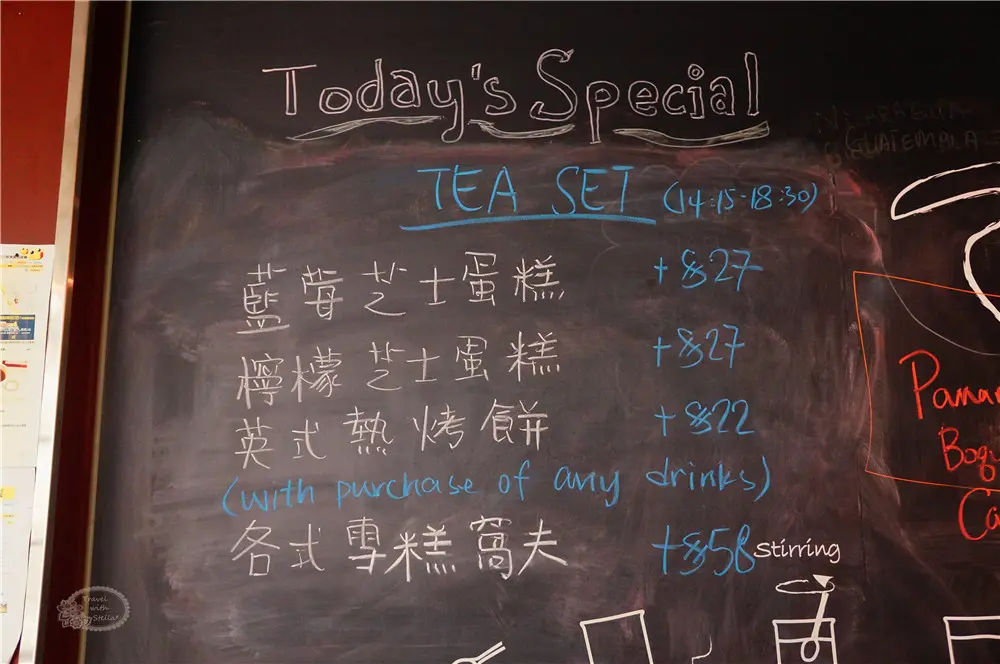 Today's Special
TEA SET (14:15-18:30)
藍莓芝士蛋糕 +$27
檸檬芝士蛋糕 +$27
英式熱烤餅 +$22
(with purchase of any drinks)
各式雪糕窩夫 +$58
Stirring
GUATEMALA
Travel
with
Stella